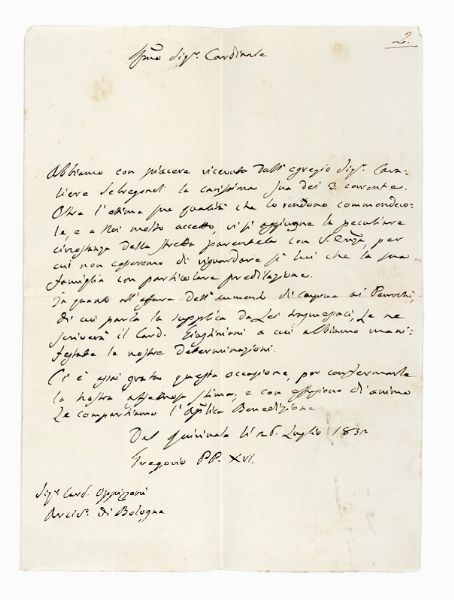 2.
Sig.r Cardinale
Abbiamo con piacere ricevuto dall' egregio Sig.r Cava-
liere la carissima sua dei 3 corrente.
Oltre l'ottime sue qualità che lo rendono commendevo-
le, e a Noi molto accetto, vi si aggiunge la peculiare
circostanza della stretta parentela con per
cui non cesseremo di riguardare sì lui che la sua
famiglia con particolare predilezione.
In quanto all'affare dell' aumento di congrua ai Parrochi,
di cui parla la supplica da Lei trasmessaci, Le ne
scriverà il Card. Giustiniani a cui abbiamo mani-
festate le nostre determinazioni.
Ci è assai grata questa occasione, per confermarle
la nostra stima, e con effusione di animo
Le compartiamo l' Ap.lica Benedizione
Dal Quirinale li 26. Luglio 1832
Gregorio PP. XVI.
Sig.r Card. Oppizzoni
Arciv.o di Bologna